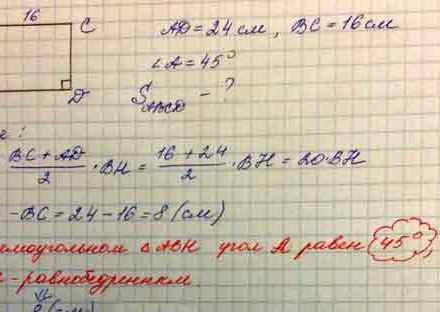 16
C
AD = 24 см, BC = 16 см
∠A = 45°
D
S ABCD - ?
BC + AD / 2 · BH = 16 + 24 / 2 · BH = 20·BH
- BC = 24 - 16 = 8 (см)
ямоугольном △ ABH угол A равен 45°,
- равнобедренным.
⇓
8 (см)